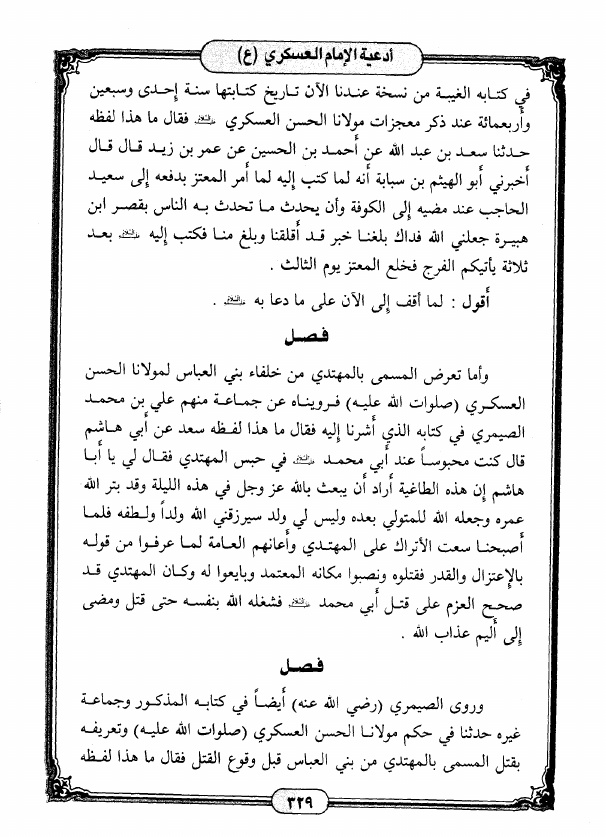 أدعية الإمام العسكري (ع)
في كتابه الغيبة من نسخة عندنا الآن تاريخ كتابتها سنة إحدى وسبعين
وأربعمائة عند ذكر معجزات مولانا الحسن العسكري عليه السلام فقال ما هذا لفظه
حدثنا سعد بن عبد الله عن أحمد بن الحسين عن عمر بن زيد قال قال
أخبرني أبو الهيثم بن سبابة أنه لما كتب إليه لما أمر المعتز بدفعه إلى سعيد
الحاجب عند مضيه إلى الكوفة وأن يحدث ما تحدث به الناس بقصر ابن
هبيرة جعلني الله فداك بلغنا خبر قد أقلقنا وبلغ منا فكتب إليه عليه السلام بعد
ثلاثة يأتيكم الفرج فخلع المعتز يوم الثالث .
أقول : لما أقف إلى الآن على ما دعا به عليه السلام .
فصل
وأما تعرض المسمى بالمهتدي من خلفاء بني العباس لمولانا الحسن
العسكري (صلوات الله عليه) فرويناه عن جماعة منهم علي بن محمد
الصيمري في كتابه الذي أشرنا إليه فقال ما هذا لفظه سعد عن أبي هاشم
قال كنت محبوساً عند أبي محمد عليه السلام في حبس المهتدي فقال لي يا أبا
هاشم إن هذه الطاغية أراد أن يبعث بالله عز وجل في هذه الليلة وقد بتر الله
عمره وجعله الله للمتولي بعده وليس لي ولد سيرزقني الله ولداً ولطفه فلما
أصبحنا سعت الأتراك على المهتدي وأعانهم العامة لما عرفوا من قوله
بالإعتزال والقدر فقتلوه ونصبوا مكانه المعتمد وبايعوا له وكان المهتدي قد
صحح العزم على قتل أبي محمد عليه السلام فشغله الله بنفسه حتى قتل ومضى
إلى أليم عذاب الله .
فصل
وروى الصيمري (رضي الله عنه) أيضاً في كتابه المذكور وجماعة
غيره حدثنا في حكم مولانا الحسن العسكري (صلوات الله عليه) وتعريفه
بقتل المسمى بالمهتدي من بني العباس قبل وقوع القتل فقال ما هذا لفظه
٣٢٩